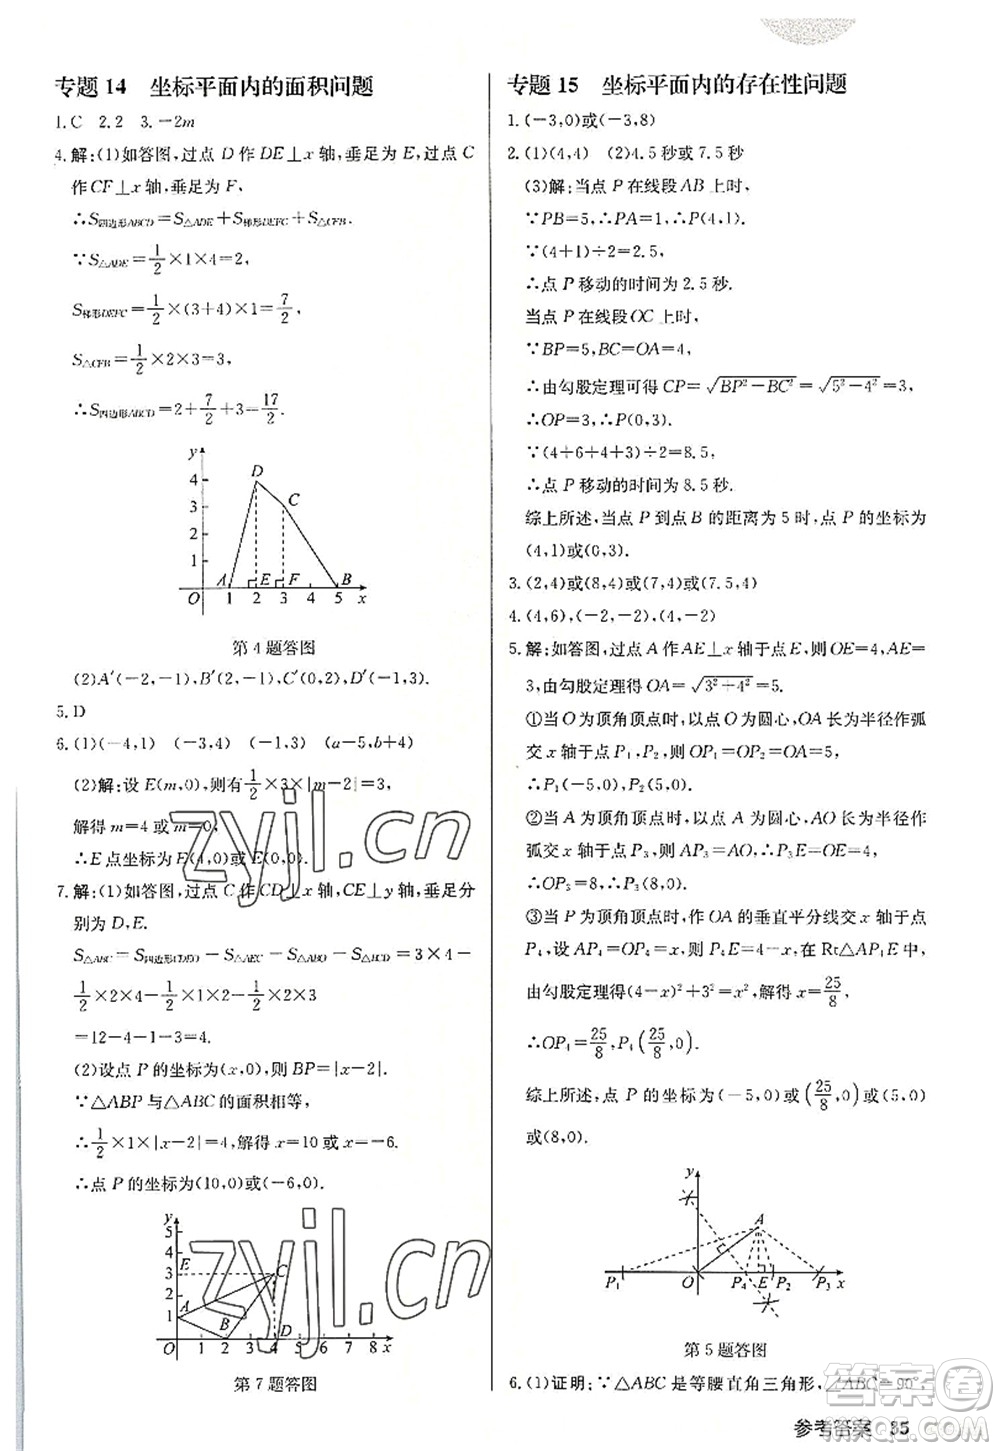 专题14　坐标平面内的面积问题
1.C　2.2　3.－2m
4.解:(1)如答图,过点 D 作 DE⊥x 轴,垂足为 E,过点 C
作 CF⊥x 轴,垂足为 F,
∴S四边形ABCD＝S△ADE＋S梯形DEFC＋S△CFB.
∵S△ADE＝1/2×1×4＝2,
S梯形DEFC＝1/2×(3＋4)×1＝7/2,
S△CFB＝1/2×2×3＝3,
∴S四边形ABCD＝2＋7/2＋3＝17/2.
y
4
3
2
1
D
C
A
E
F
B
O
1 2 3 4 5 x
第 4 题答图
(2)A′(－2,－1),B′(2,－1),C′(0,2),D′(－1,3).
5.D
6.(1)(－4,1)　(－3,4)　(－1,3)　(a－5,b＋4)
(2)解:设 E(m,0),则有1/2×3×|m－2|＝3,
解得 m＝4 或 m＝0,
∴E 点坐标为 E(4,0)或 E(0,0).
7.解:(1)如答图,过点 C 作 CD⊥x 轴,CE⊥y 轴,垂足分
别为 D,E.
S△ABC＝S四边形CDEO－S△AEC－S△ABO－S△BCD＝3×4－
1/2×2×4－1/2×1×2－1/2×2×3
＝12－4－1－3＝4.
(2)设点 P 的坐标为(x,0),则 BP＝|x－2|.
∵△ABP与△ABC的面积相等,
∴1/2×1×|x－2|＝4,解得 x＝10 或 x＝－6.
∴点 P 的坐标为(10,0)或(－6,0).
y
5
4
3
2
1
E
C
A
B
D
O
1 2 3 4 5 6 7 8 x
第 7 题答图
专题15　坐标平面内的存在性问题
1.(－3,0)或(－3,8)
2.(1)(4,4)　(2)4.5秒或7.5秒
(3)解:当点 P 在线段 AB 上时,
∵PB＝5,∴PA＝1,∴P(4,1).
∵(4＋1)÷2＝2.5,
∴点 P 移动的时间为 2.5 秒.
当点 P 在线段 OC 上时,
∵BP＝5,BC＝OA＝4,
∴由勾股定理可得 CP＝√(BP²－BC²)＝√(5²－4²)＝3,
∴OP＝3,∴P(0,3).
∵(4＋6＋4＋3)÷2＝8.5,
∴点 P 移动的时间为 8.5 秒.
综上所述,当点 P 到点 B 的距离为 5 时,点 P 的坐标为
(4,1)或(0,3).
3.(2,4)或(8,4)或(7,4)或(7.5,4)
4.(4,6),(－2,－2),(4,－2)
5.解:如答图,过点 A 作 AE⊥x 轴于点 E,则 OE＝4,AE＝
3,由勾股定理得 OA＝√(3²＋4²)＝5.
①当 O 为顶角顶点时,以点 O 为圆心,OA 长为半径作弧
交 x 轴于点 P₁,P₂,则 OP₁＝OP₂＝OA＝5,
∴P₁(－5,0),P₂(5,0).
②当 A 为顶角顶点时,以点 A 为圆心,AO长为半径作
弧交 x 轴于点 P₃,则 AP₃＝AO,
∴OP₃＝8,∴P₃(8,0).
③当 P 为顶角顶点时,作 OA 的垂直平分线交 x 轴于点
P₄,设 AP₄＝OP₄＝x,则 P₄E＝4－x,在 Rt△AP₄E 中,
由勾股定理得(4－x)²＋3²＝x²,解得 x＝25/8,
∴OP₄＝25/8,∴P₄(25/8,0).
综上所述,符合条件的点 P 的坐标为(－5,0)或(25/8,0)或(5,0)
或(8,0).
y
A
P₁
O
P₄
E
P₂
P₃
x
第 5 题答图
6.(1)证明:∵△ABC是等腰直角三角形,∠ABC＝90°,
参考答案　85
zyjl.cn
zyjl.cn
答案圈